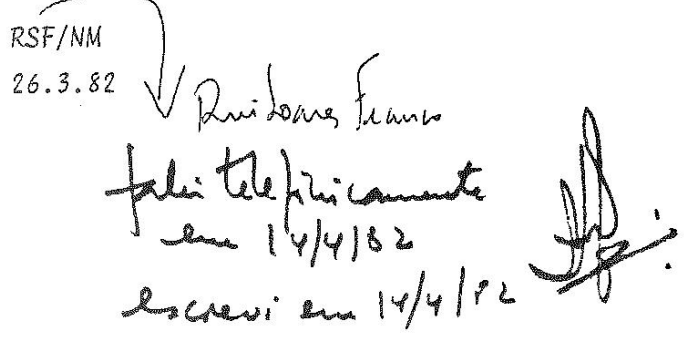 RSF/NM
26.3.82
Rui Soares Franco
falei telefonicamente
em 14/4/82
escrevi em 14/4/82